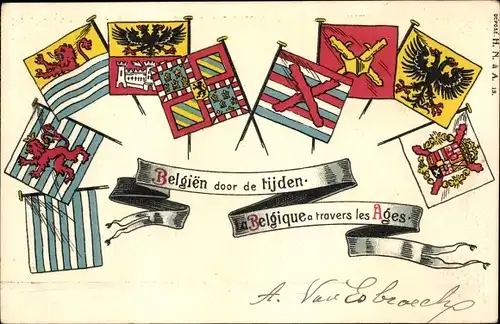 Belgiën door de tijden.
La Belgique a travers les Ages.
A. Van Esbroeck